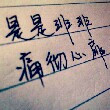 是是非非
痛彻心扉